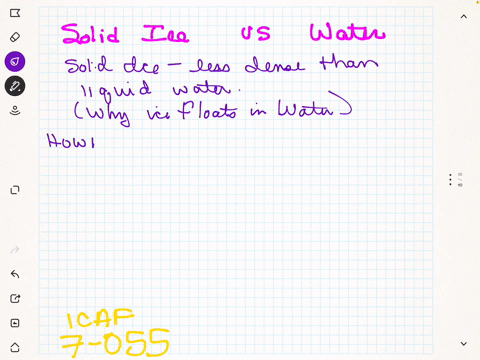 Solid Ice vs Water
Solid Ice - less dense than
liquid water.
(Why ice floats in Water)
How
ICAF
7-055